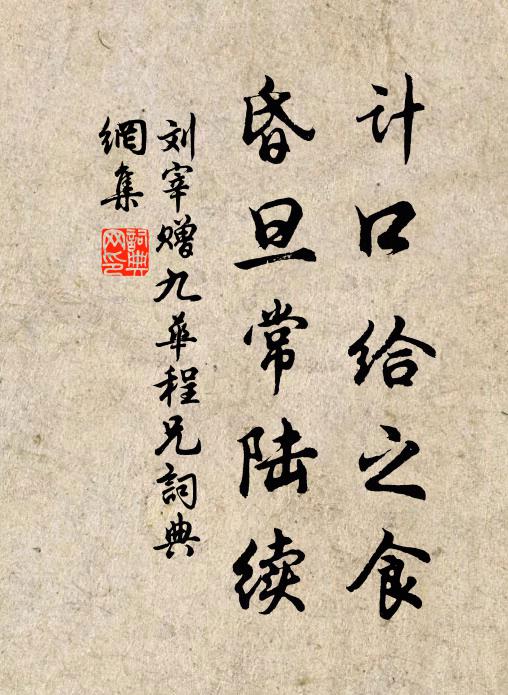 计口给之食
昏旦常陆续
刘宰赠九华程兄詞典
網集
詞典
网印